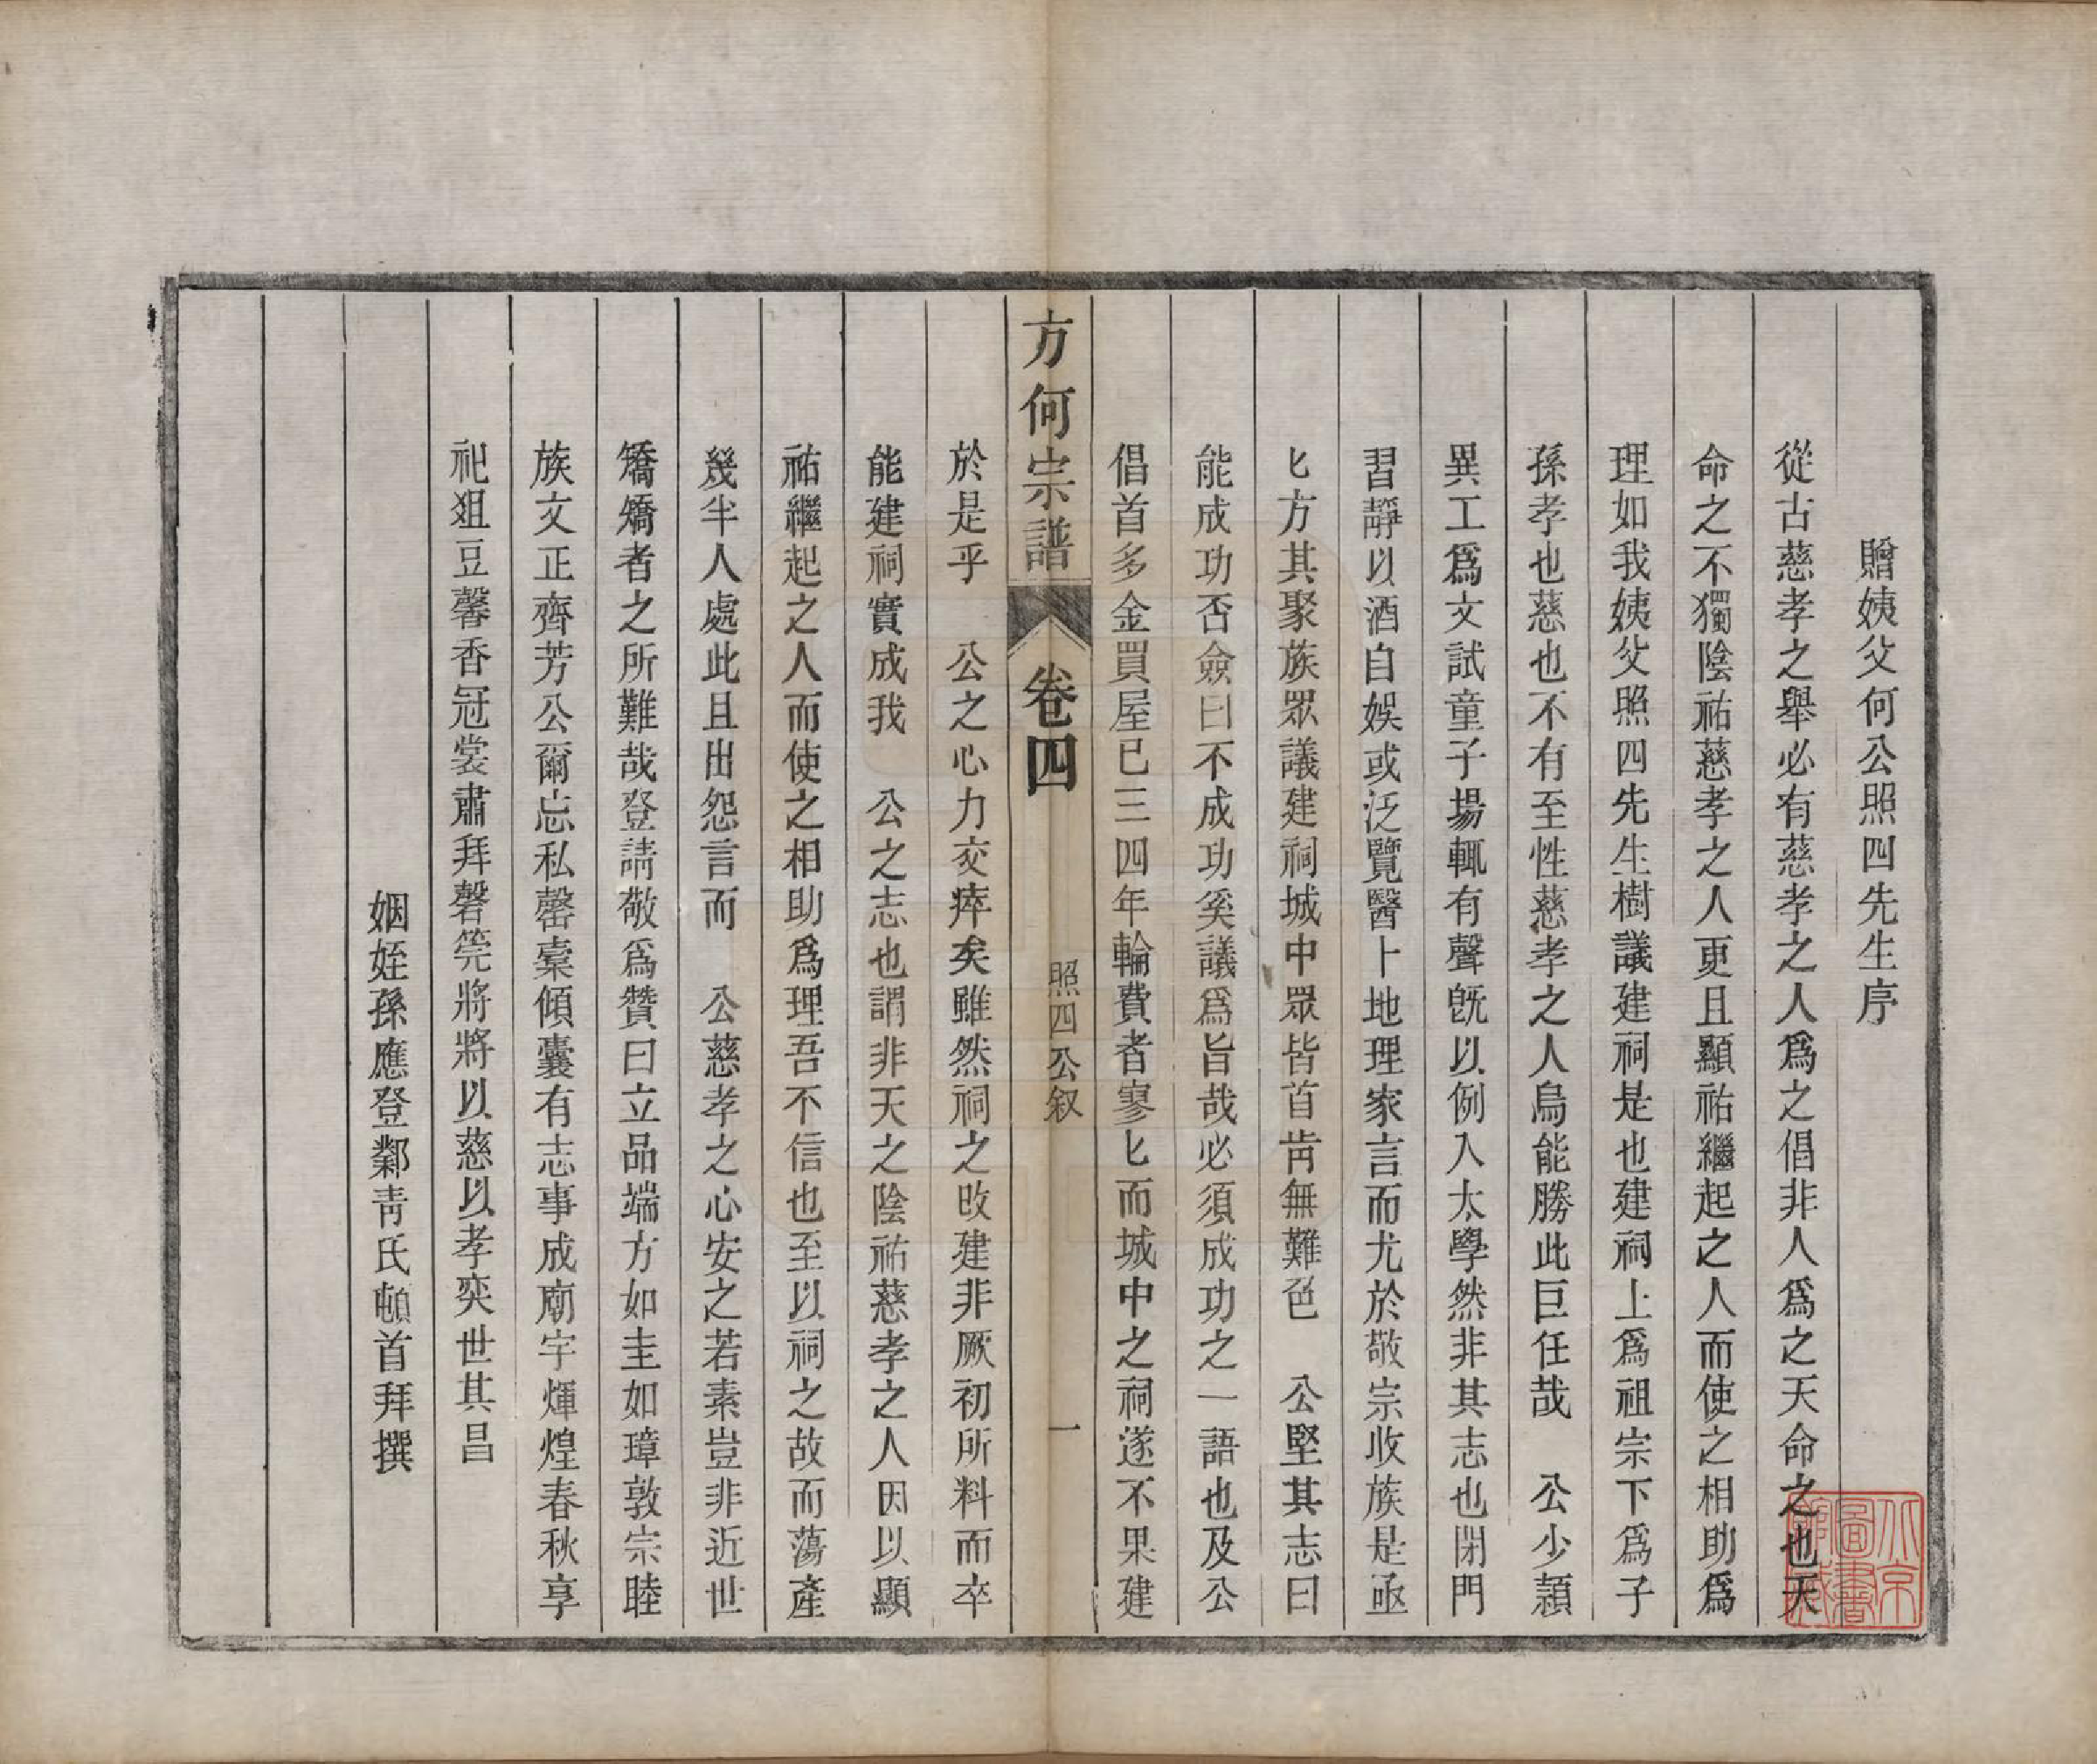 贈姨父何公照四先生序
從古慈孝之舉必有慈孝之人爲之倡非人爲之天命之也天
命之不獨陰祐慈孝之人更且顯祐繼起之人而使之相助爲
理如我姨父照四先生樹議建祠是也建祠上爲祖宗下爲子
孫孝也慈也不有至性慈孝之人烏能勝此巨任哉　公少穎
異工爲文試童子場輒有聲旣以例入太學然非其志也閉門
習靜以酒自娛或泛覽醫卜地理家言而尤於敬宗收族是亟
匕方其聚族眾議建祠城中眾皆首肯無難色　公堅其志曰
能成功否僉曰不成功奚議爲旨哉必須成功之一語也及公
倡首多金買屋已三四年輪費者寥匕而城中之祠遂不果建
方何宗譜　卷四　照四公叙　一
於是乎　公之心力交瘁矣雖然祠之改建非厥初所料而卒
能建祠實成我　公之志也謂非天之陰祐慈孝之人因以顯
祐繼起之人而使之相助爲理吾不信也至以祠之故而蕩產
幾半人處此且出怨言而　公慈孝之心安之若素豈非近世
矯矯者之所難哉登請敬爲贊曰立品端方如圭如璋敦宗睦
族文正齊芳公爾忘私罄槖傾囊有志事成廟宇煇煌春秋享
祀俎豆馨香冠裳肅拜磬筦將將以慈以孝奕世其昌
姻姪孫應登鄴青氏頓首拜撰
北京圖書館藏